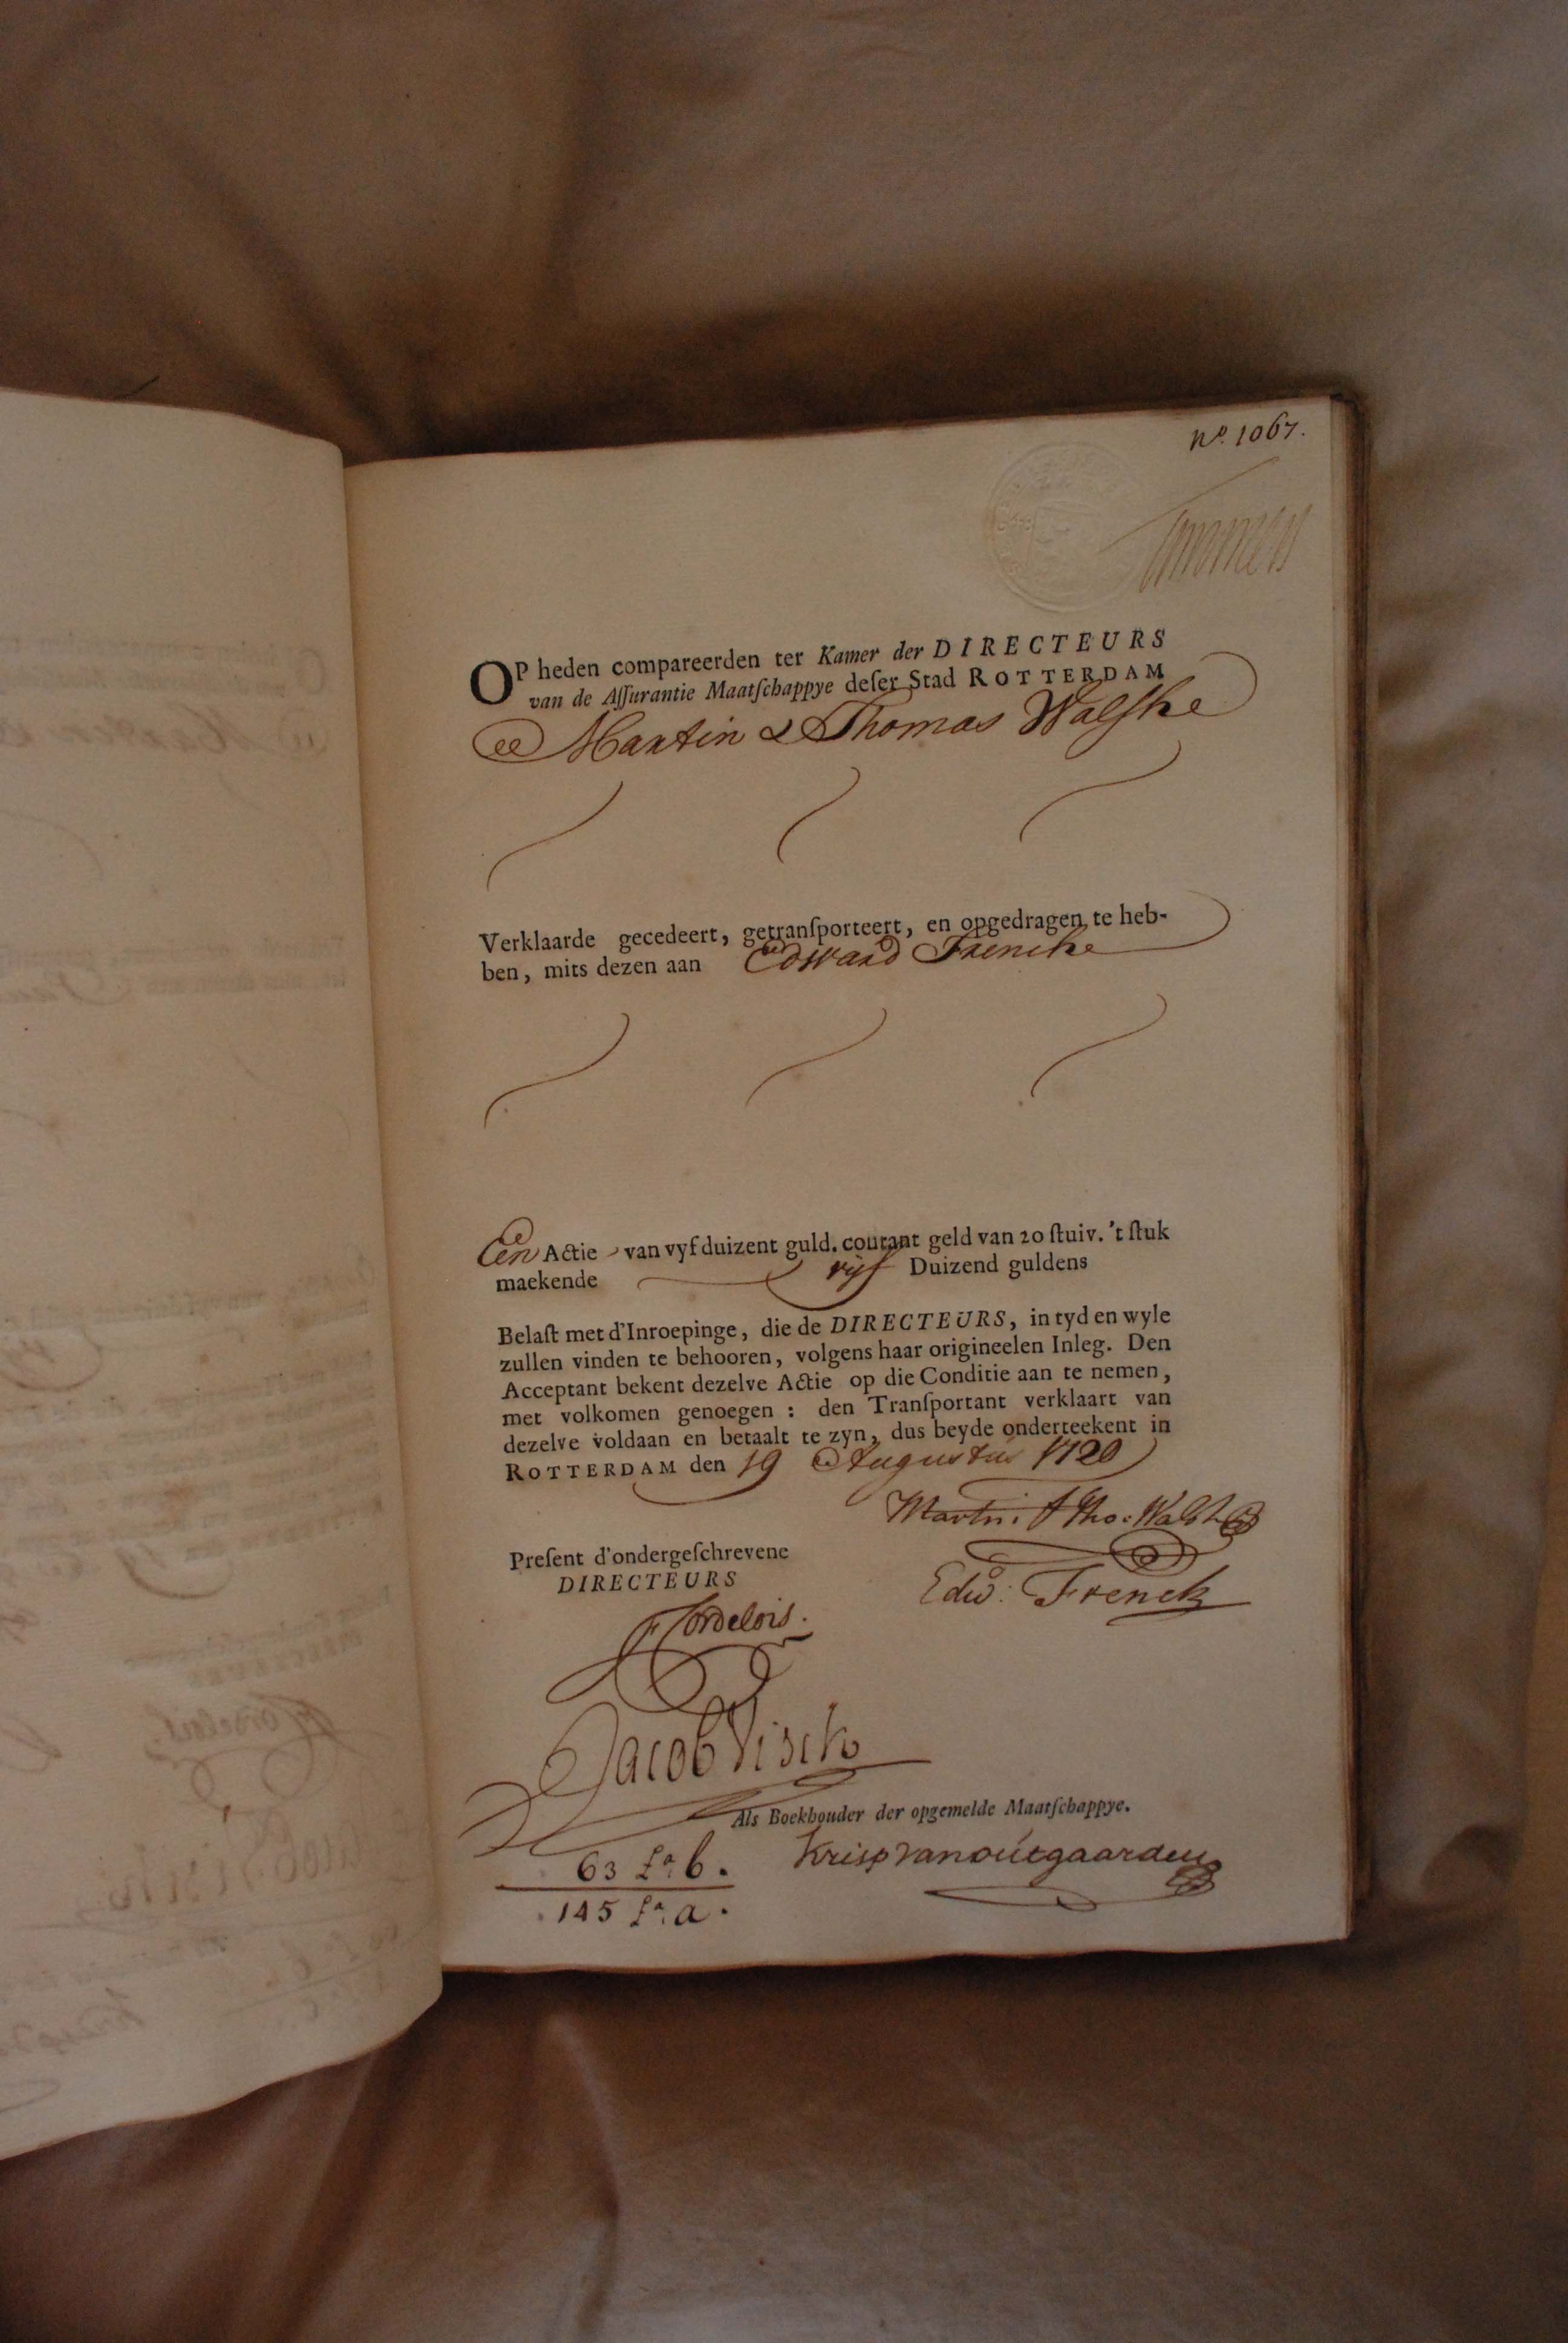 No. 1067.
Timmers
OP heden compareerden ter Kamer der DIRECTEURS
van de Aſſurantie Maatſchappye deſer Stad ROTTERDAM
Martin & Thomas Walſhe
Verklaarde gecedeert, getranſporteert, en opgedragen te heb-
ben, mits dezen aan Edward Frencke
Een Actie van vyf duizent guld. courant geld van 20 ſtuiv. 't ſtuk
maekende vyf Duizend guldens
Belaſt met d'Inroepinge, die de DIRECTEURS, in tyd en wyle
zullen vinden te behooren, volgens haar origineelen Inleg. Den
Acceptant bekent dezelve Actie op die Conditie aan te nemen,
met volkomen genoegen : den Tranſportant verklaart van
dezelve voldaan en betaalt te zyn, dus beyde onderteekent in
ROTTERDAM den 19 Augustus 1720
Martin & Tho: Walsh
Preſent d'ondergeſchrevene
DIRECTEURS
Edwd: Frenck
Cordelois.
Jacob Visch
Als Boekhouder der opgemelde Maatſchappye.
Kriſp Vanoutgaarden
63 Fo. b.
145 Fo. a.